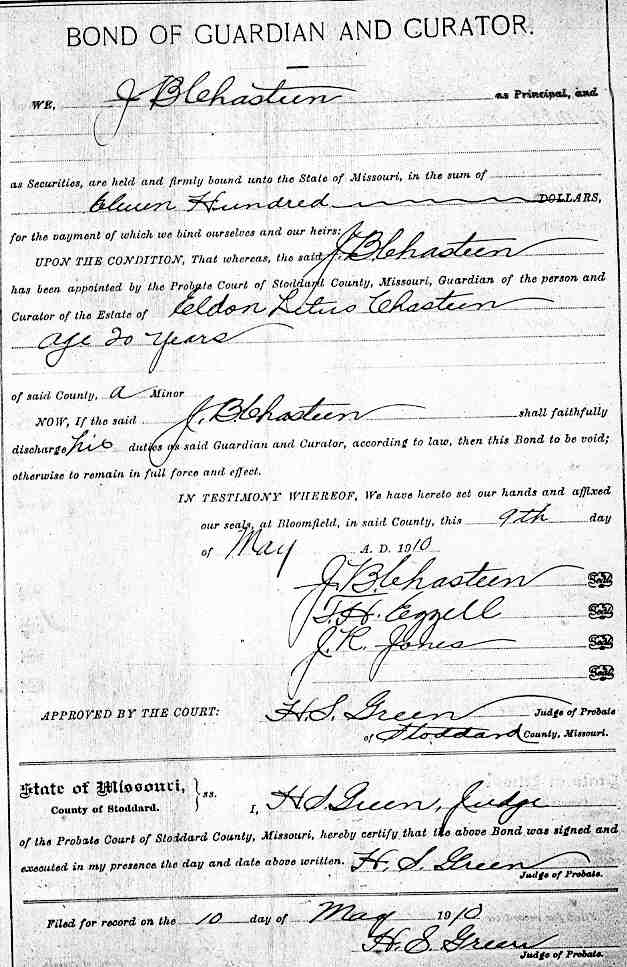 BOND OF GUARDIAN AND CURATOR.
WE, J B Chasteen as Principal, and
as Securities, are held and firmly bound unto the State of Missouri, in the sum of
Eleven Hundred DOLLARS,
for the payment of which we bind ourselves and our heirs:
UPON THE CONDITION, That whereas, the said J. B. Chasteen
has been appointed by the Probate Court of Stoddard County, Missouri, Guardian of the person and
Curator of the Estate of Eldon Litus Chasteen
age 20 years
of said County, a Minor
NOW, If the said J. B. Chasteen shall faithfully
discharge his duties as said Guardian and Curator, according to law, then this Bond to be void;
otherwise to remain in full force and effect.
IN TESTIMONY WHEREOF, We have hereto set our hands and affixed
our seals, at Bloomfield, in said County, this 9th day
of May A. D. 1910
J. B. Chasteen Seal
T. H. Ezzell Seal
J. R. Jones Seal
Seal
APPROVED BY THE COURT: H. S. Green Judge of Probate
of Stoddard County, Missouri.
State of Missouri, } ss.
County of Stoddard. I, H S Green, Judge
of the Probate Court of Stoddard County, Missouri, hereby certify that the above Bond was signed and
executed in my presence the day and date above written. H. S. Green
Judge of Probate.
Filed for record on the 10 day of May 1910
H. S. Green
Judge of Probate.